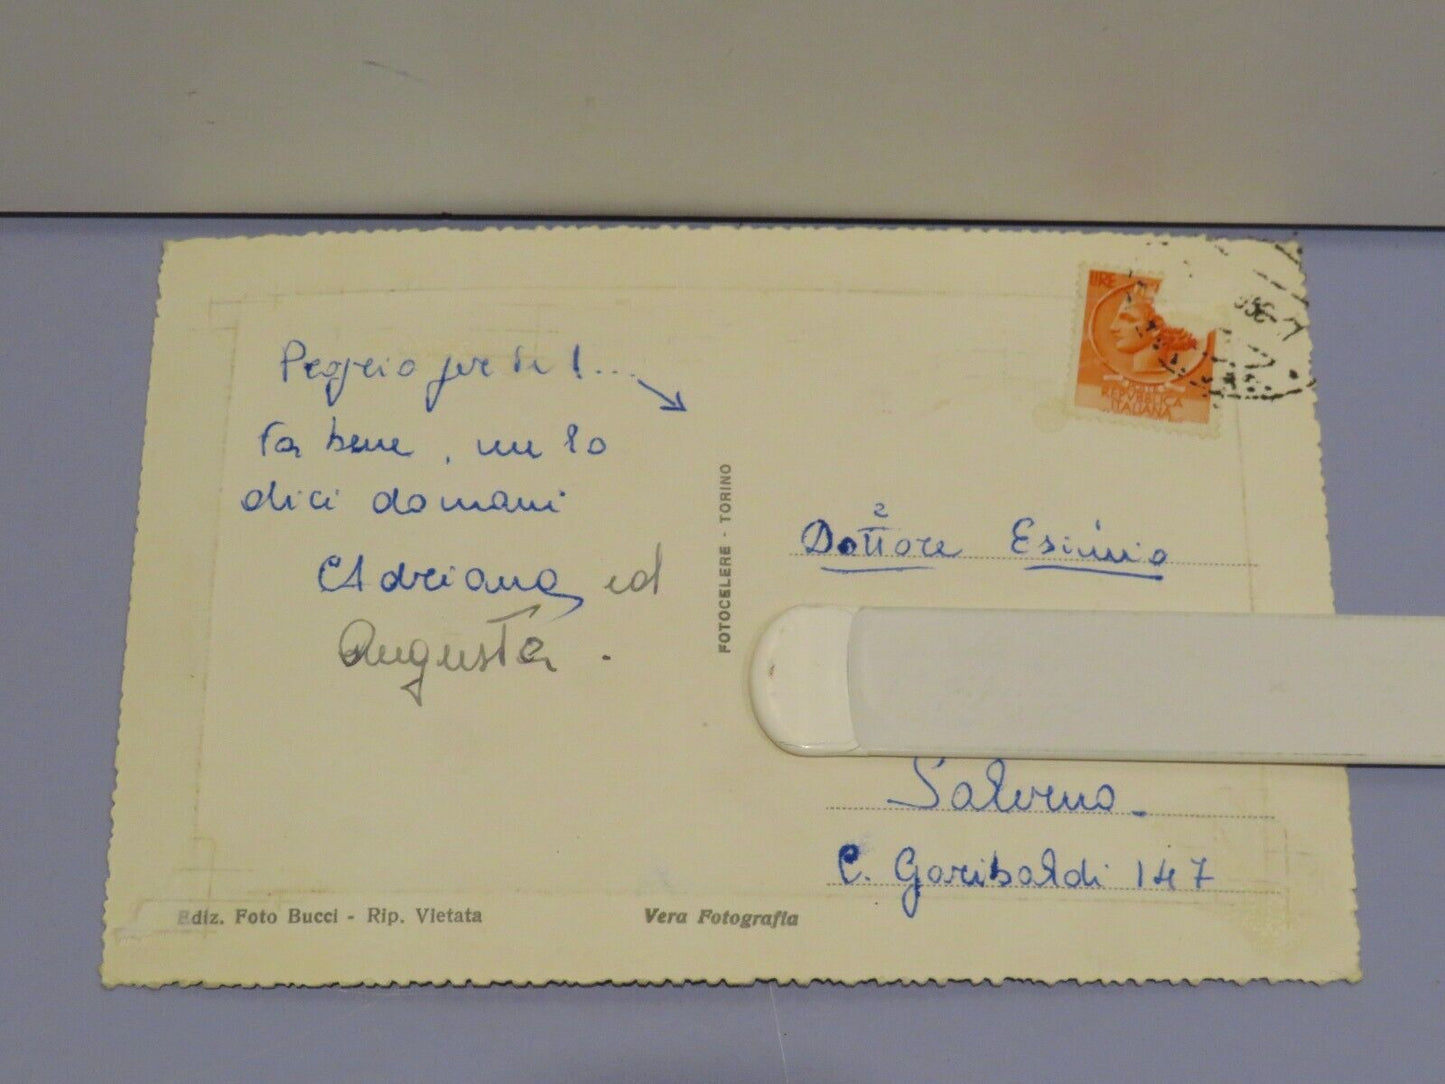 Peggio per te!...
Fa bene, me lo
dici domani
Adriana ed
Augusta.
FOTOCELERE - TORINO
LIRE
REPVBBLICA
ITALIANA
Dottore Esimio
Salerno
C. Garibaldi 147
Ediz. Foto Bucci - Rip. Vietata
Vera Fotografia